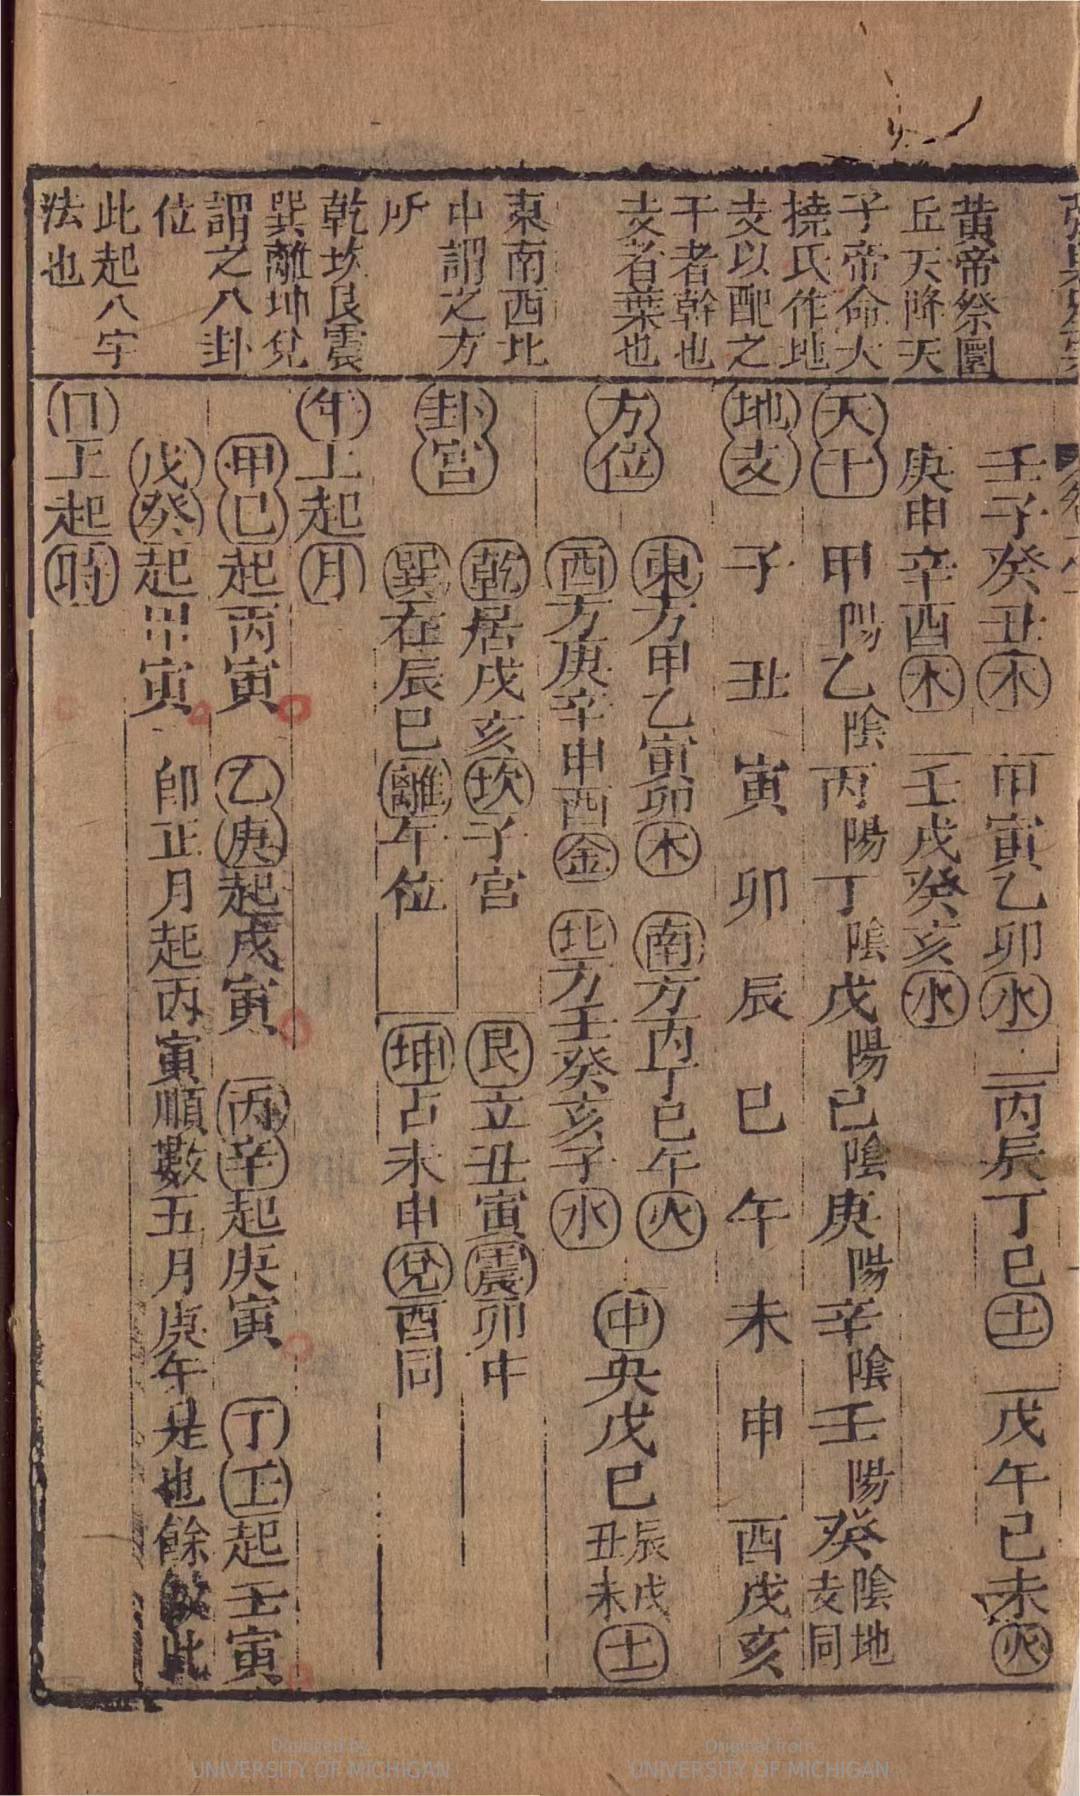 黃帝祭圜
丘天降天
子帝命大
撓氏作地
支以配之
干者幹也
支者葉也
東南西北
中謂之方
所
乾坎艮震
巽離坤兌
謂之八卦
位
此起八字
法也
壬子癸丑木 甲寅乙卯水 丙辰丁巳土 戊午己未火
庚申辛酉木 壬戌癸亥水
天干 甲陽乙陰丙陽丁陰戊陽己陰庚陽辛陰壬陽癸陰地支同
地支 子丑寅卯辰巳午未申酉戌亥
方位 東方甲乙寅卯木 南方丙丁巳午火
西方庚辛申酉金 北方壬癸亥子水
中央戊巳辰戌丑未土
卦宮 乾居戌亥坎子宮 艮立丑寅震卯中
巽在辰巳離午位 坤占未申兌酉同
年上起月
甲巳起丙寅 乙庚起戊寅 丙辛起庚寅 丁壬起壬寅
戊癸起甲寅 卽正月起丙寅順數五月庚午是也餘此
日上起時
Digitized by
UNIVERSITY OF MICHIGAN
Original from
UNIVERSITY OF MICHIGAN